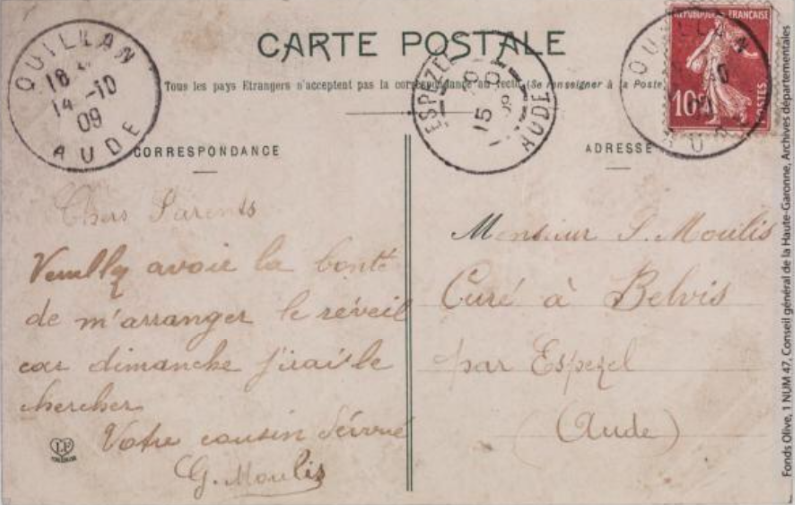 CARTE POSTALE
Tous les pays Etrangers n'acceptent pas la correspondance au recto (Se renseigner à la Poste)
QUILLAN
18
14 -10
09
AUDE
ESPEZEL
15
AUDE
QUILLAN
REPUBLIQUE FRANÇAISE
10c
POSTES
CORRESPONDANCE
Chers Parents
Veuillez avoir la bonté
de m'arranger le réveil
car dimanche j'irais le
chercher
Votre cousin dévoué
G. Moulis
ADRESSE
Monsieur S. Moulis
Curé à Belvis
par Espezel
(Aude)
Fonds Olive, 1 NUM 47, Conseil général de la Haute-Garonne, Archives départementales